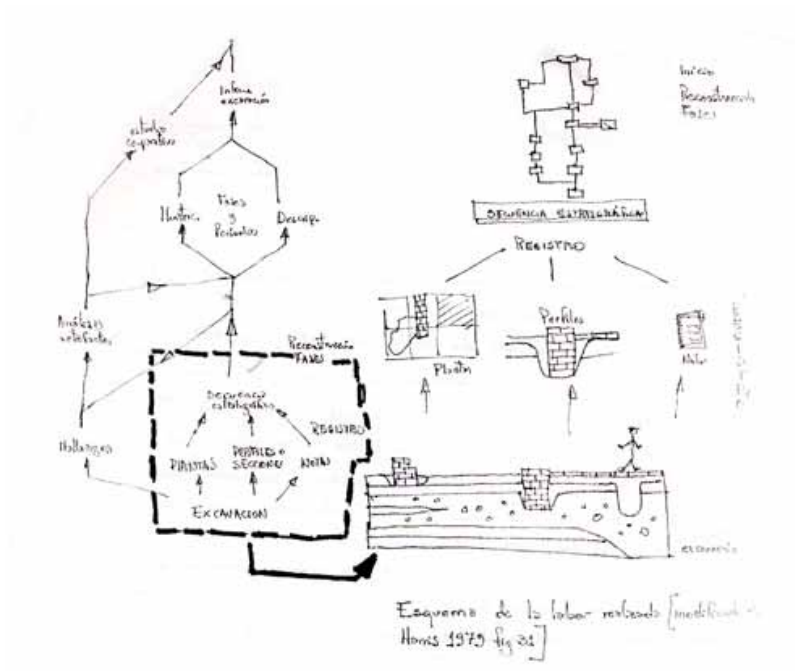 Informe
excavación
estudio
comparativo
Fases
y
Periodos
Descrip.
Análisis
artefactos
Hallazgos
Reconstrucción
FASES
Secuencia
estratigráfica
REGISTRO
PLANTAS
PERFILES o
SECCIONES
NOTAS
EXCAVACION
Inicio
Reconstrucción
Fases
SECUENCIA ESTRATIGRÁFICA
REGISTRO
Planta
Perfiles
Notas
Esquema de la labor realizada
Harris 1979 fig 31]